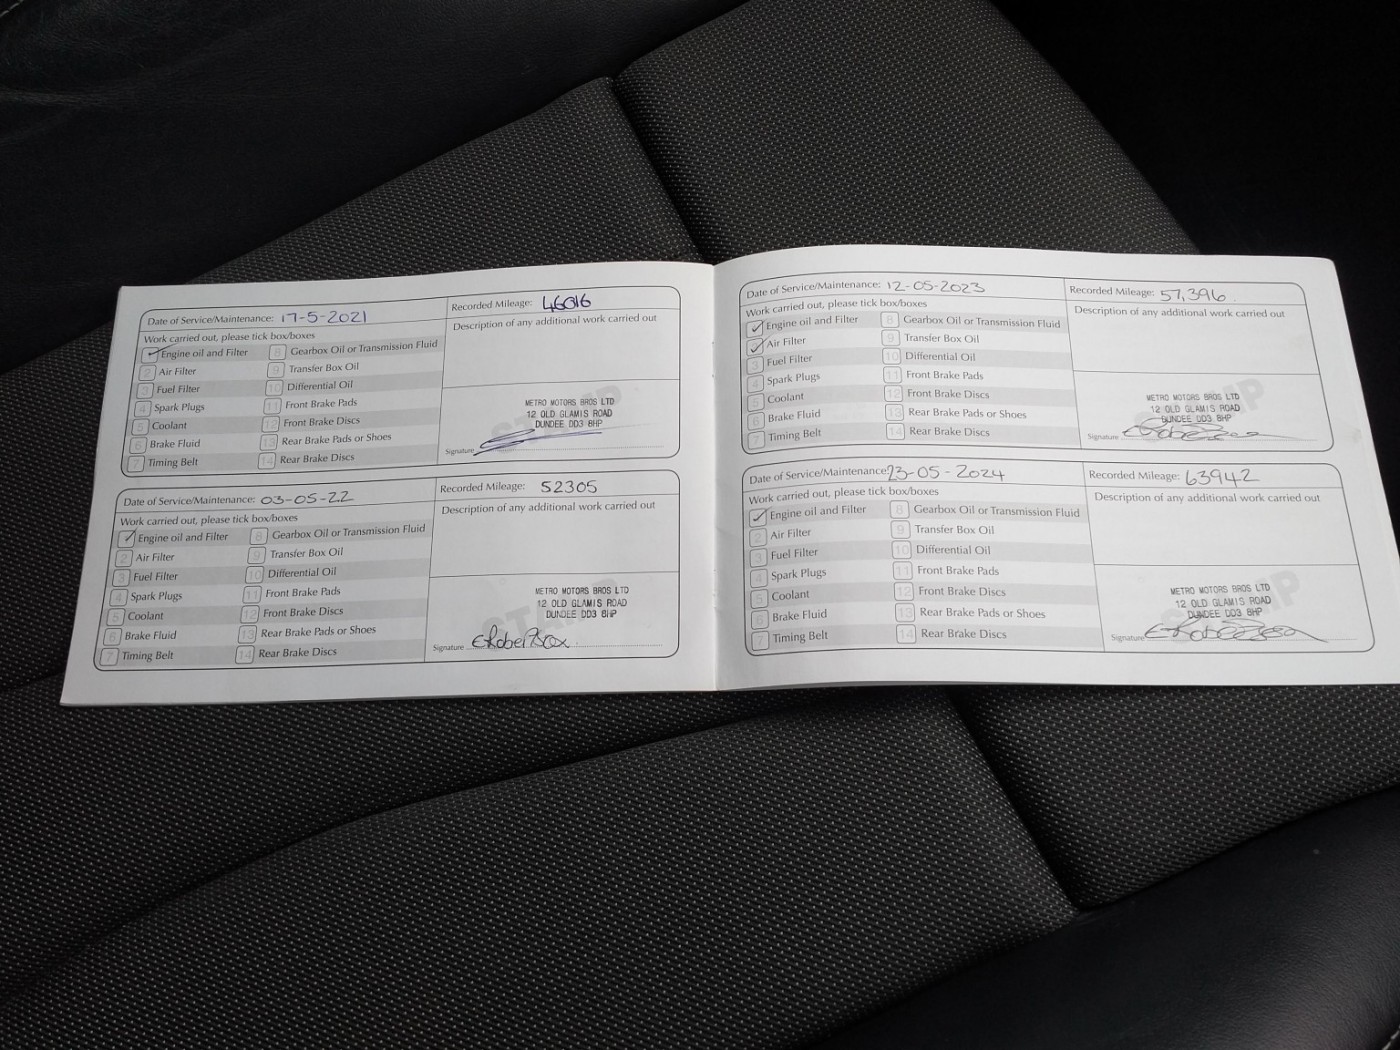 Date of Service/Maintenance: 17-5-2021
Recorded Mileage: 46016
Work carried out, please tick box/boxes
Description of any additional work carried out
Engine oil and Filter
8 Gearbox Oil or Transmission Fluid
2 Air Filter
9 Transfer Box Oil
3 Fuel Filter
10 Differential Oil
4 Spark Plugs
11 Front Brake Pads
5 Coolant
12 Front Brake Discs
6 Brake Fluid
13 Rear Brake Pads or Shoes
7 Timing Belt
14 Rear Brake Discs
STAMP
METRO MOTORS BROS LTD
12 OLD GLAMIS ROAD
DUNDEE DD3 8HP
Signature
Date of Service/Maintenance: 03-05-22
Recorded Mileage: 52305
Work carried out, please tick box/boxes
Description of any additional work carried out
Engine oil and Filter
8 Gearbox Oil or Transmission Fluid
2 Air Filter
9 Transfer Box Oil
3 Fuel Filter
10 Differential Oil
4 Spark Plugs
11 Front Brake Pads
5 Coolant
12 Front Brake Discs
6 Brake Fluid
13 Rear Brake Pads or Shoes
7 Timing Belt
14 Rear Brake Discs
STAMP
METRO MOTORS BROS LTD
12 OLD GLAMIS ROAD
DUNDEE DD3 8HP
Signature
Date of Service/Maintenance: 12-05-2023
Recorded Mileage: 57,396
Work carried out, please tick box/boxes
Description of any additional work carried out
Engine oil and Filter
8 Gearbox Oil or Transmission Fluid
Air Filter
9 Transfer Box Oil
3 Fuel Filter
10 Differential Oil
4 Spark Plugs
11 Front Brake Pads
5 Coolant
12 Front Brake Discs
6 Brake Fluid
13 Rear Brake Pads or Shoes
7 Timing Belt
14 Rear Brake Discs
STAMP
METRO MOTORS BROS LTD
12 OLD GLAMIS ROAD
DUNDEE DD3 8HP
Signature
Date of Service/Maintenance: 23-05-2024
Recorded Mileage: 63942
Work carried out, please tick box/boxes
Description of any additional work carried out
Engine oil and Filter
8 Gearbox Oil or Transmission Fluid
2 Air Filter
9 Transfer Box Oil
3 Fuel Filter
10 Differential Oil
4 Spark Plugs
11 Front Brake Pads
5 Coolant
12 Front Brake Discs
6 Brake Fluid
13 Rear Brake Pads or Shoes
7 Timing Belt
14 Rear Brake Discs
STAMP
METRO MOTORS BROS LTD
12 OLD GLAMIS ROAD
DUNDEE DD3 8HP
Signature